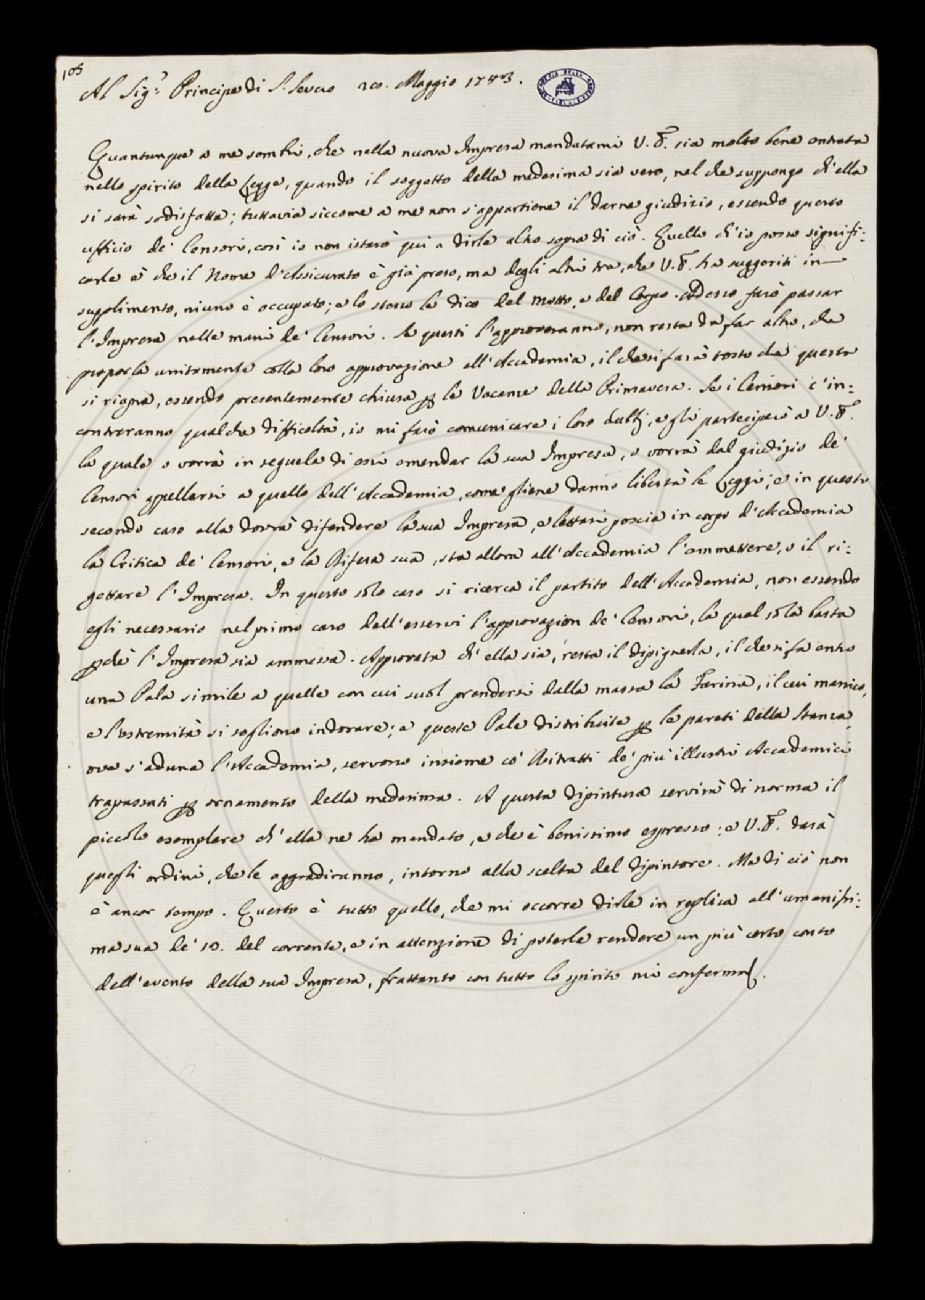 105
Al Sig.r Principe di S. Severo 20. Maggio 1743.
Quantunque a me sembri, che nella nuova Impresa mandatami V. E. sia molto bene entrata
nello spirito della Legge, quando il soggetto della medesima sia vero, nel che suppongo ch'ella
si sarà sodisfatta; tuttavia siccome a me non s'appartiene il darne giudizio, essendo questo
ufficio de' Censori, così io non istarò qui a dirle altro sopra di ciò. Quello ch'io posso signifi:
carle è che il Nome d'Assicurato è già preso, ma degli altri tre, che V. E. ha suggeriti in
supplimento, niuno è occupato; e lo stesso le dico del Motto, e del Corpo. Adesso farò passar
l'Impresa nelle mani de' Censori. Se questi l'approveranno, non resta da far altro, che
proporla unitamente colla loro approvazione all'Accademia, il che si farà tosto che questa
si riapra, essendo presentemente chiusa per le Vacanze della Primavera. Se i Censori c'in:
contreranno qualche difficoltà, io mi farò comunicare i loro dubbj, e gli parteciperò a V. E.
la quale o vorrà in seguela di essi emendar la sua Impresa, o vorrà dal giudizio de'
Censori appellarsi a quello dell'Accademia, come gliene danno libertà le Leggi; e in questo
secondo caso ella dovrà difendere la sua Impresa, e lettasi poscia in corpo d'Accademia
la Critica de' Censori, e la Difesa sua, sta allora all'Accademia l'ammettere, o il ri:
gettare l'Impresa. In questo solo caso si ricerca il partito dell'Accademia, non essendo
egli necessario nel primo caso dell'esservi l'approvazion de' Censori, la qual sola basta
perchè l'Impresa sia ammessa. Approvata ch'ella sia, resta il dipignerla, il che si fa entro
una Pala simile a quelle con cui suol prendersi dalla massa la Farina, il cui manico,
e l'estremità si sogliono indorare; e queste Pale distribuite per le pareti della Stanza
ove s'aduna l'Accademia, servono insieme co' Ritratti de' più illustri Accademici
trapassati per ornamento della medesima. A questa dipintura servirà di norma il
piccolo esemplare ch'ella ne ha mandato, e che è benissimo espresso; e V. E. darà
quegli ordini, che le aggradiranno, intorno alla scelta del dipintore. Ma di ciò non
è ancor tempo. Questo è tutto quello, che mi occorre dirle in replica all'umanissi:
ma sua de' 10. del corrente, e in attenzione di poterle rendere un più certo conto
dell'evento della sua Impresa, frattanto con tutto lo spirito mi confermo